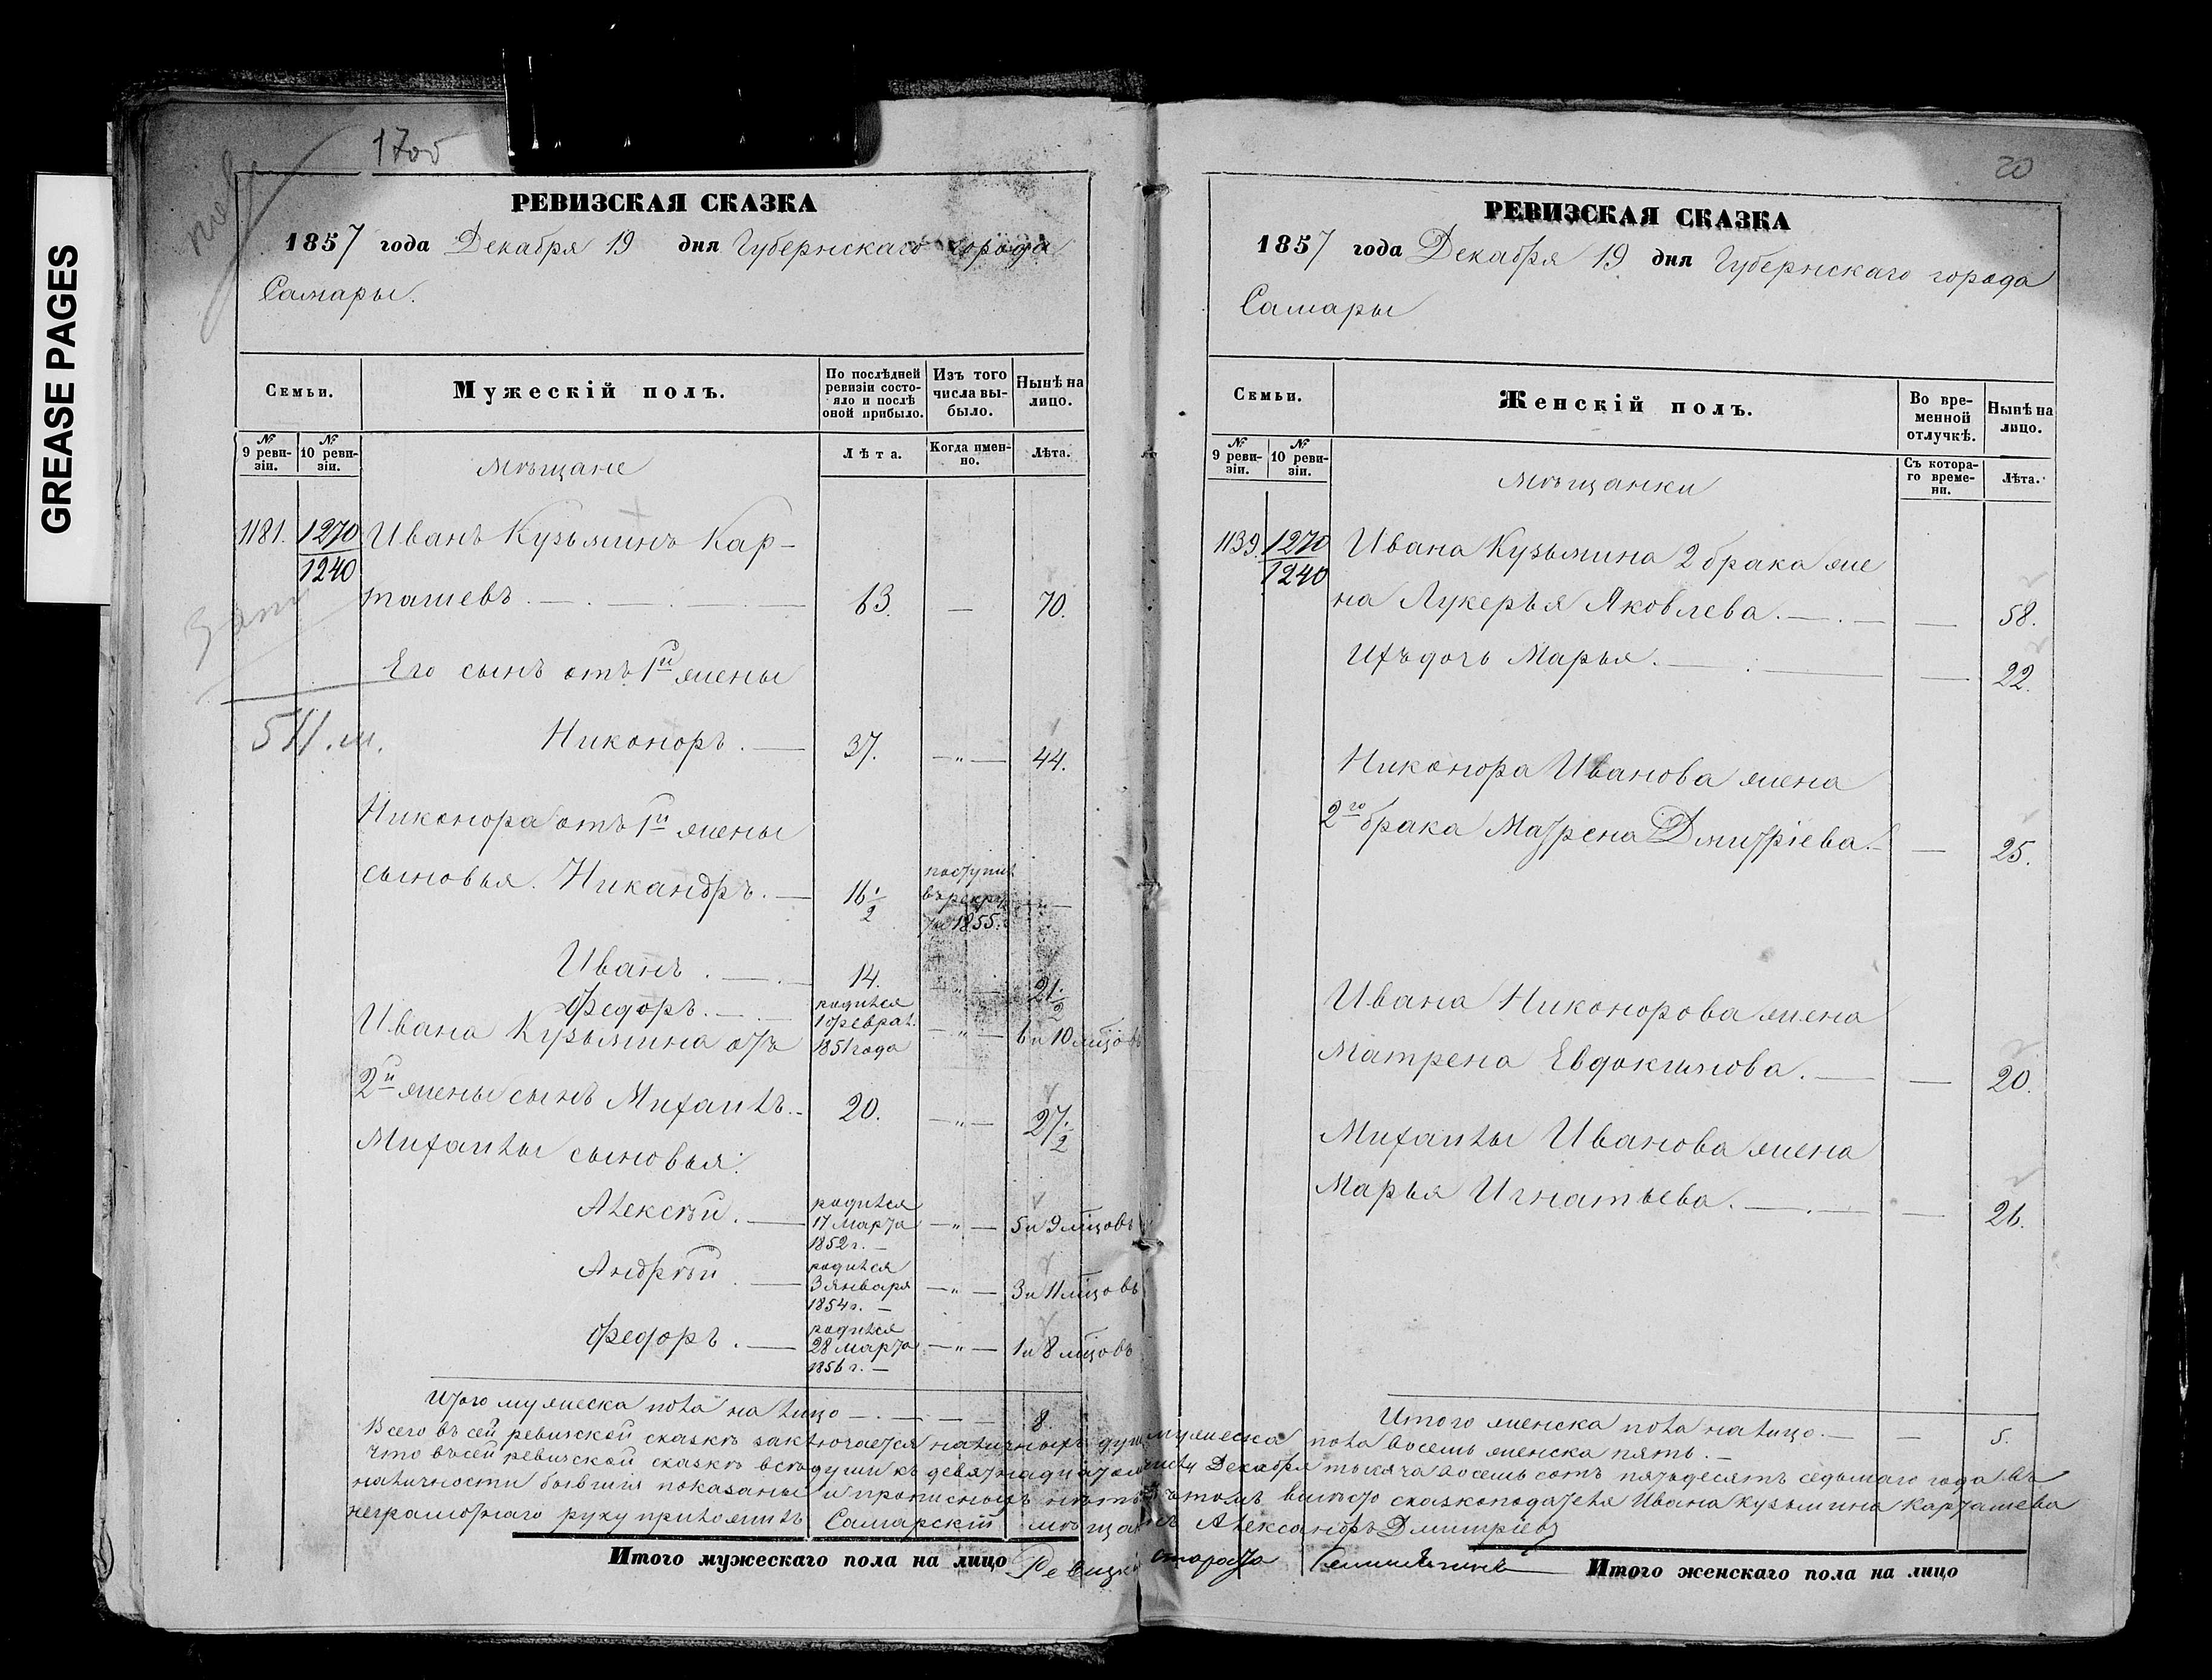 GREASE PAGES
РЕВИЗСКАЯ СКАЗКА
1857 года Декабря 19 дня Губернскаго города
Самары.
Семьи.
Мужескій полъ.
По послѣдней ревизіи состо-
яло и послѣ
оной прибыло.
Изъ того
числа вы-
было.
Нынѣ на
лицо.
№
9 реви-
зіи.
№
10 реви-
зіи.
Лѣта.
Когда имен-
но.
Лѣта.
Мѣщане
1181. 1270 Иванъ Кузьминъ Кар-
1240
ташевъ. 63. — 70.
Его сынъ отъ 1й жены
511.
Никоноръ. — 37. —„— 44.
Никонора отъ 1й жены
сыновья. Никандръ. — 16 1/2 поступилъ въ рекруты 1855. —„—
Иванъ. — 14. „ 21 1/2
Федоръ. — родился 1 феврал. 1851 года —„— 6 и 10 мѣсцовъ
Ивана Кузьмина отъ
2й жены сынъ Михаилъ.- 20. —„— 27 1/2
Михаилы сыновья:
Алексѣй. — родился 17 марта 1852 г. — —„— 5 и 9 мѣсцовъ
Андрѣй. — родился 3 января 1854 г. — —„— 3 и 11 мѣсцовъ
Федоръ. — родился 28 марта 1856 г. — —„— 1 и 8 мѣсцовъ
Итого мужеска пола на лицо — 8.
20
РЕВИЗСКАЯ СКАЗКА
1857 года Декабря 19 дня Губернскаго города
Самары
Семьи.
Женскій полъ.
Во вре-
менной
отлучкѣ.
Нынѣ на
лицо.
№
9 реви-
зіи.
№
10 реви-
зіи.
Съ котора-
го време-
ни.
Лѣта.
Мѣщанки
1139. 1270 Ивана Кузьмина 2 брака же
1240
на Лукерья Яковлева. — 58.
Ихъ дочь Марья. — 22.
Никонора Иванова жена
2го брака Матрена Дмитріева. — 25.
Ивана Никонорова жена
Матрена Евдокимова. — 20.
Михаилы Иванова жена
Марья Игнатьева. — 26.
Итого женска пола на лицо. — 5.
Всего въ сей ревизской сказкѣ заключается наличныхъ душъ мужеска пола восемь женска пять. —
что въ сей ревизской сказкѣ всѣ души къ девятнадцатому числу Декабря тысяча восемь сотъ пятьдесятъ седьмаго года въ
наличности бывшія показаны и прописныхъ нѣтъ въ томъ вмѣсто сказкоподателя Ивана Кузьмина Карташева
неграмотнаго руку приложилъ Самарскій мѣщанинъ Александръ Дмитріевъ
Итого мужескаго пола на лицо
староста
Итого женскаго пола на лицо